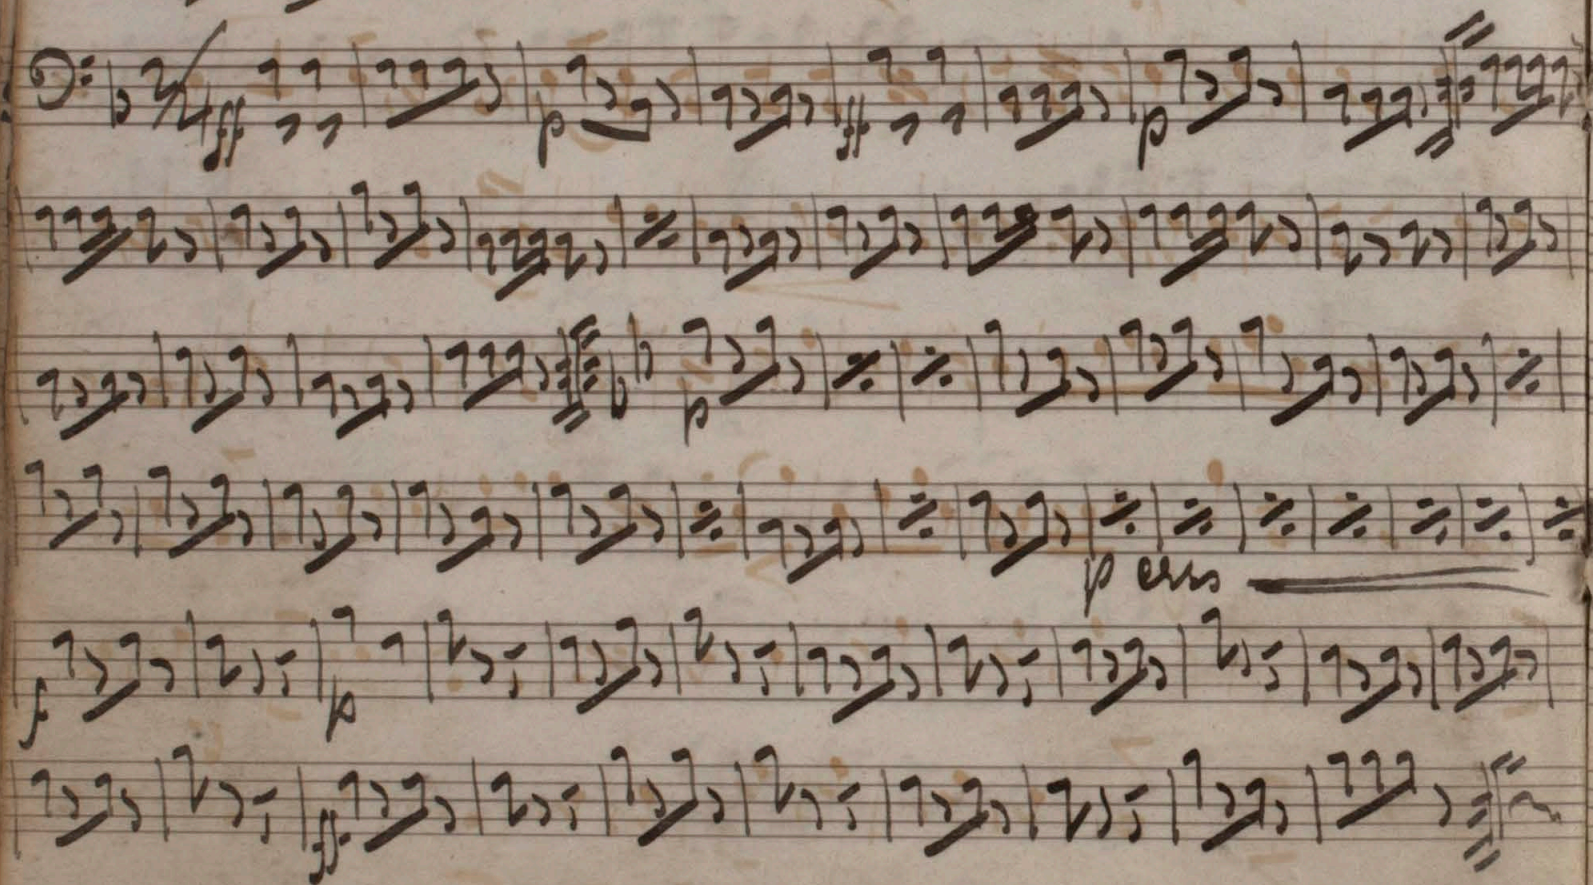 ff p ff p
p
p cres
f p
ff